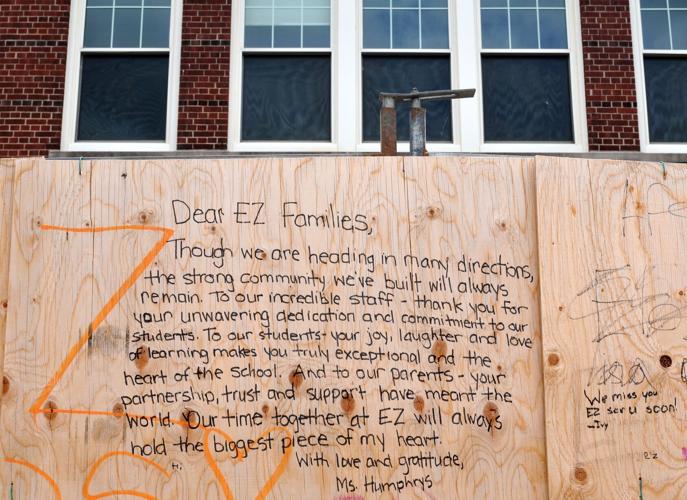 Dear EZ Families,
Though we are heading in many directions,
the strong community we've built will always
remain. To our incredible staff - thank you for
your unwavering dedication and commitment to our
students. To our students - your joy, laughter and love
of learning makes you truly exceptional and the
heart of the school. And to our parents - your
partnership, trust and support have meant the
world. Our time together at EZ will always
hold the biggest piece of my heart.
With love and gratitude,
Ms. Humphrys
We miss you
EZ see u soon!
-Ivy